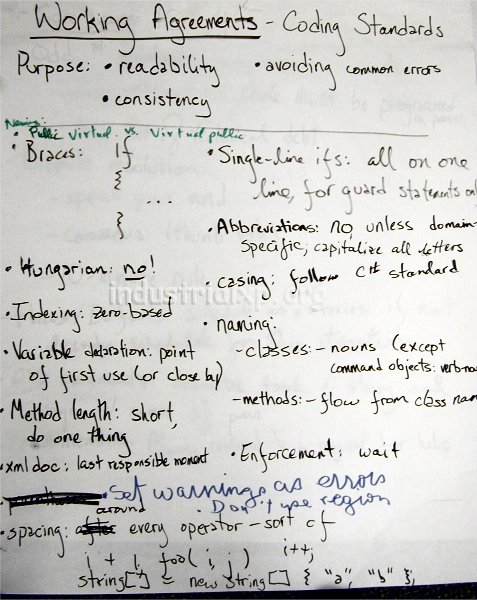 Working Agreements - Coding Standards
Purpose: • readability • avoiding common errors
• consistency
Naming:
• Public virtual vs. Virtual public
• Braces: If
{
...
}
• Single-line ifs: all on one
line, for guard statements onl
• Abbreviations: no, unless domain-
specific; capitalize all letters
• Hungarian: no!
• casing: follow C# standard
industrialxp.org
• Indexing: zero-based
• naming:
- classes: - nouns (except
command objects: verb-no
- methods: - flow from class nam
• Variable declaration: point
of first use (or close by)
• Method length: short,
do one thing
• xmldoc: last responsible moment
• Enforcement: wait
• Set warnings as errors
• Don't use region
• spacing: around every operator - sort of
i + 1, foo( i, j ) i++;
string[] = new string[] { "a", "b" };